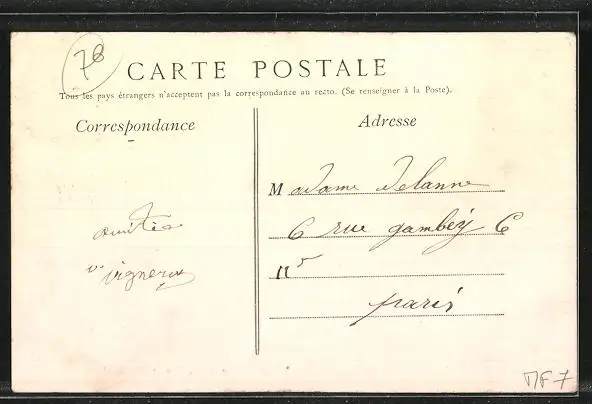 78
CARTE POSTALE
Tous les pays étrangers n'acceptent pas la correspondance au recto. (Se renseigner à la Poste).
Correspondance
Adresse
Madame Delanne
6 rue gambey 6
11e
paris
amitiés
vigneron
MF 7